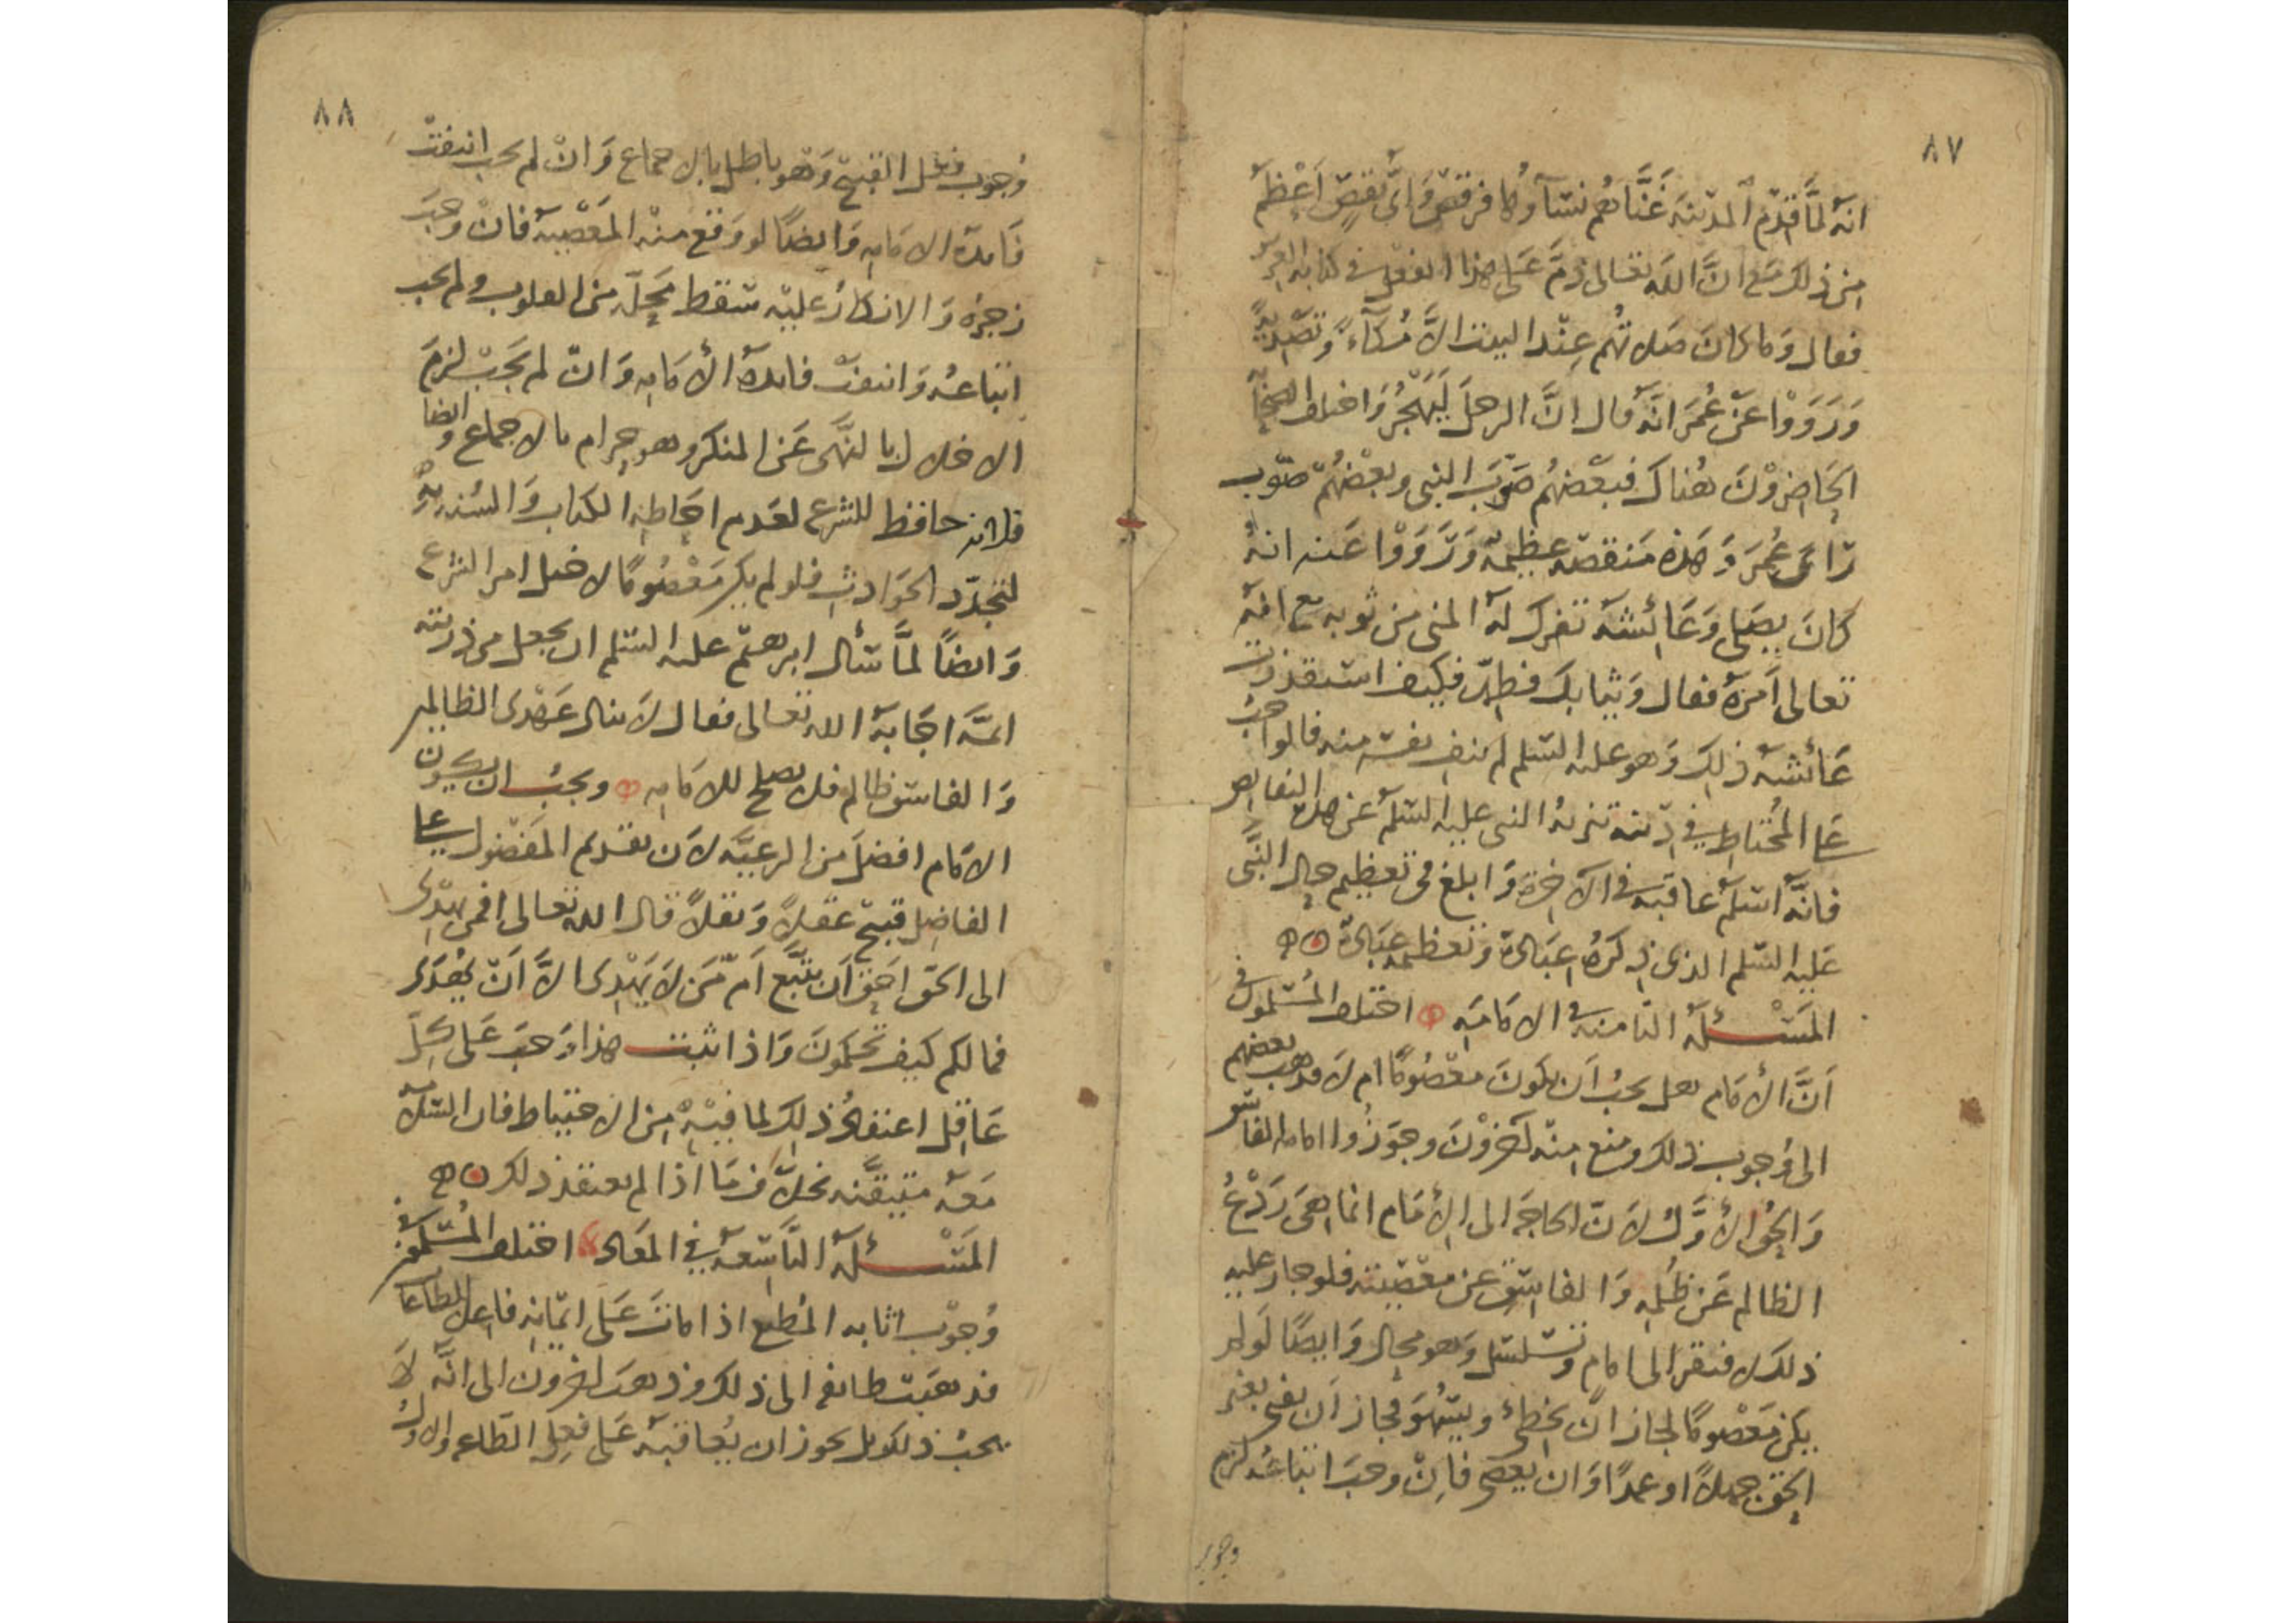 ٨٧
انه لما قدم المدينة غناهم نسآؤها فرقص واى نقص اعظم
من ذلك مع ان الله تعالى ذم على هذا الفعل فى كتابه العزيز
فقال وما كان صلاتهم عند البيت الا مُكآءً وتصديةً
وَرَوَوْا عَنْ عُمَرَ انه قال انَّ الرجلَ لَيَهْجُرُ واختلف
الحَاضِروْنَ هُناك فبعضهم صَوَّبَ النبى وبعْضُهُم صَوّب
رَاىَ عُمَرَ وَهذه مَنقصَه عظيمة وَرَوَوْا عَنه انهُ
كانَ يصَلى وَعَائشة تفرك له المنى من ثوبه مع انه
تعالى اَمرَهُ فقال وَثيابك فطهّر فكيف استقذرت
عَائشه ذلك وَهو عليه السّلم لم ينف نفسه منه فالواجب
عَلى المُحْتاط فى دينه تنزيهُ النبى عليه السّلم عن هذه النقايص
فانّه اسلم عاقبه فى الآخِرة وَابلغ فى تعظيم حال النَّبى
عَليه السّلم الذى ذِكرُهُ عِبَادَة وَتعظيمه عِبَادَة
المَسْئلة الثامنة فى الامَامَه اختلف المُسْلمون فى
اَنَّ الأمَام هل يجبُ اَن يكونَ معْصُومًا ام لَا فذهب بعضهم
الى وُجوب ذلك ومنع مِنه آخروْنَ وجوّزُوا امامة الفاسق
وَالحَقُّ الأوَّلُ لانّ الحاجَة الى الأمَام انما هىَ رَدْعُ
الظالم عَن ظُلمِه وَالفاسِق عن معْصِيته فلو جاز عليه
ذلك لافتقر الى امامٍ وتسَلسَل وهو محال وَايضًا لَو لم
يكن مَعْصومًا لجاز ان يخطئ ويَسْهُوَ فجاز اَن يفتى بغير
الحَق جهلًا او عمدًا وَان يعصى فاِنْ وجبَ اتباعُه لزم
وجوب
٨٨
وُجوب فعل القبيح وَهو باطل بالاجماع وَانْ لم يجب انتفتْ
فَايدة الامَامه وَايضًا لو وَقع منه المَعْصِيه فانْ وَجبَ
زجرُهُ وَالانكارُ عليه سَقط محَلّه من القلوب ولم يجب
اتباعُه وَانتفتْ فايدة الأمَامه وَانْ لم يَجبْ لزمَ
الاخلال بالنَّهى عَن المنكر وهو حرام بالاجماع وايضا
فلانه حافظ للشرع لعَدم احَاطة الكتاب وَالسُنه به
لتجدّد الحَوَادث فلو لم يكن مَعْصُومًا لاختل امر الشرع
وَايضًا لمَّا سَأل ابرهيم عليه السّلم ان يجعل من ذريته
ائمَّه اجَابهُ الله تعالى فقال لَا ينال عَهْدى الظالمين
وَالفاسق ظالم فلا يصلح للامَامه ويجبُ ان يكون
الامَام افضلَ من الرعيَّه لاَن تقديم المَفْضول على
الفاضِل قبيح عقلاً وَنقلاً قال الله تعالى افمن يهْدِى
الى الحَق احَق اَن يتبَّع اَم مَن لَا يَهْدِى الَّا اَنْ يُهْدَى
فمالكم كيف تحكمُونَ وَاذا ثبت هذا وَجبَ عَلى كلّ
عَاقل اعتقادُ ذلك لما فيْه مِن الاحتياط فان السَّلامَة
مَعَه متيقَّنه بخلَاف مَا اذا لم يعتقد ذلك
المَسْئله التَّاسعه فى المَعَاد اختلف المُسْلمون فى
وُجوْب اثابه المُطيع اذا ماتَ عَلى ايمَانه فاعل الطاعات
فذهَبت طائفه الى ذلك وذهبَ آخرون الى انَّه لَا
يجبُ ذلك بل يجوز ان يُعاقبه عَلى فعل الطّاعه والاولُ